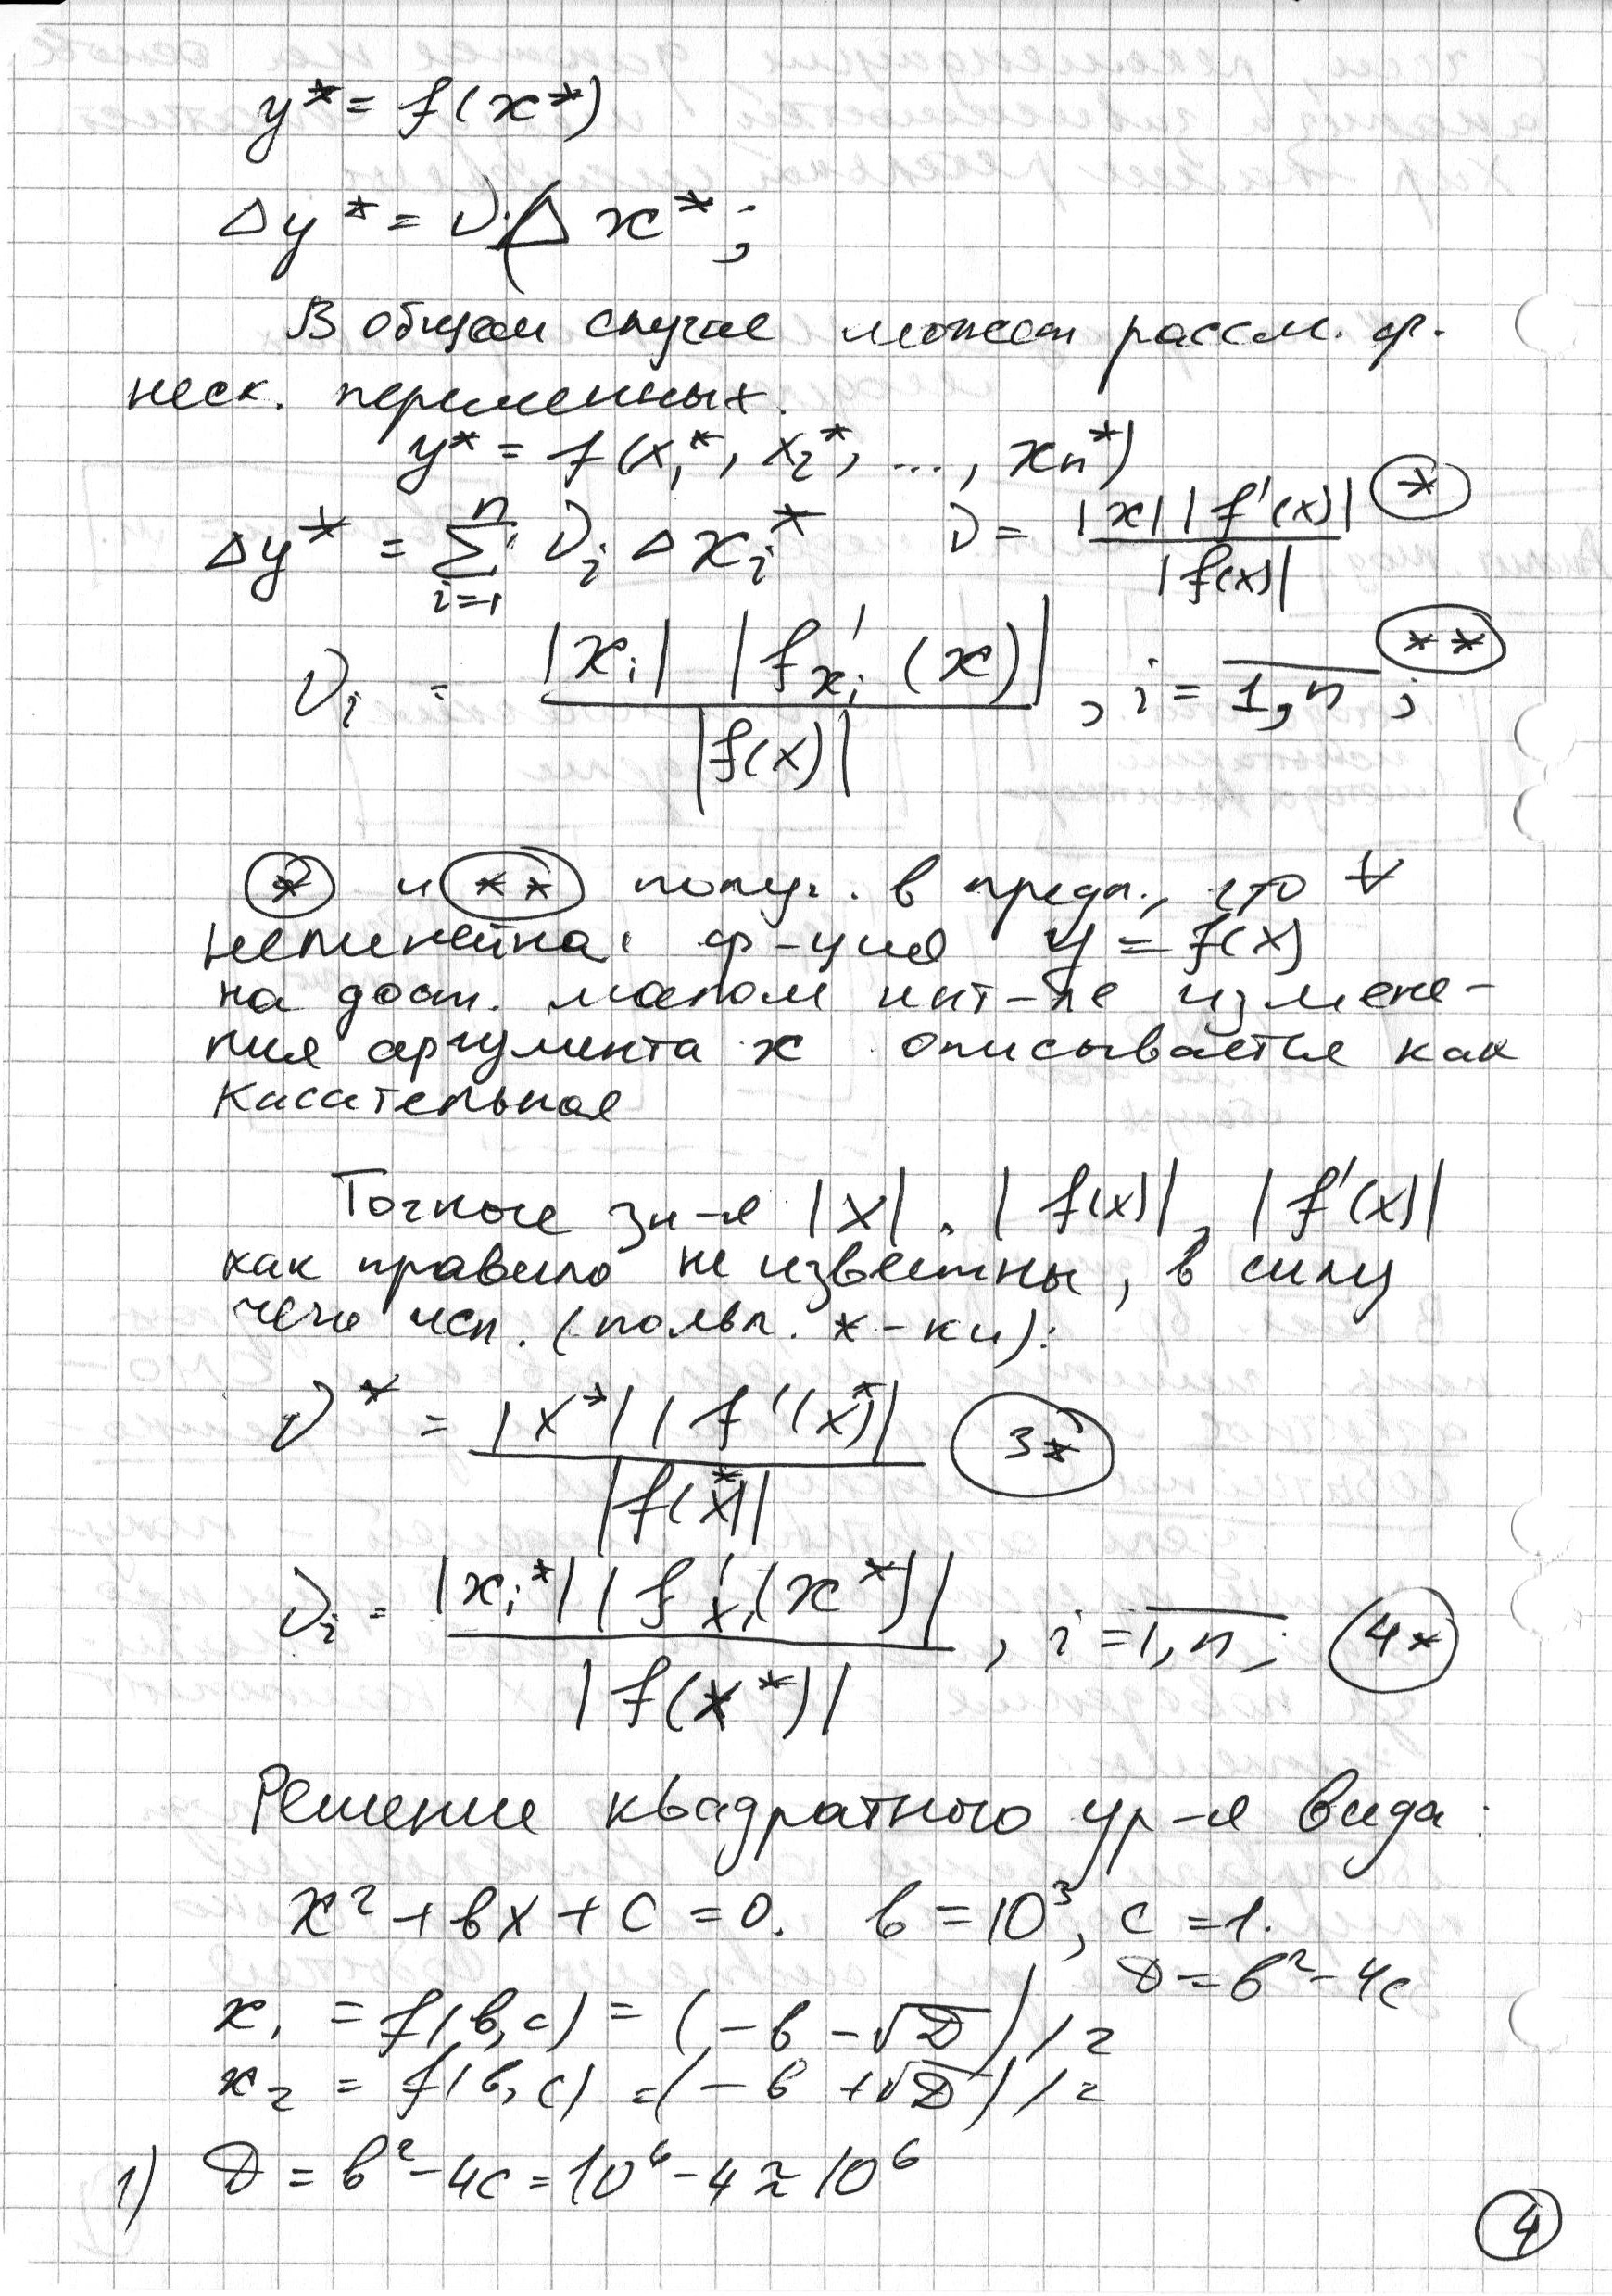 y* = f(x*)
Δy* = ν·Δx*;
В общем случае можем рассм. ф.
неск. переменных.
y* = f(x₁*, x₂*, ..., xₙ*)
Δy* = Σᵢ₌₁ⁿ νᵢ Δxᵢ* ν = |x| |f'(x)| / |f(x)| (*)
νᵢ = |xᵢ| |f'ₓᵢ(x)| / |f(x)|, i = 1,n; (**)
(*) и (**) получ. в предп., что ∀
нелинейная ф-ция y = f(x)
на дост. малом инт-ле измене-
ния аргумента x описывается как
касательная
Точные зн-я |x|, |f(x)|, |f'(x)|
как правило не известны, в силу
чего исп. (польз. *-ки):
ν* = |x*| |f'(x*)| / |f(x*)| (3*)
νᵢ = |xᵢ*| |f'ₓᵢ(x*)| / |f(x*)|, i = 1,n; (4*)
Решение квадратного ур-я вида:
x² + bx + c = 0. b = 10³, c = 1.
D = b² - 4c
x₁ = f(b,c) = (-b - √D)/2
x₂ = f(b,c) = (-b + √D)/2
1) D = b² - 4c = 10⁶ - 4 ≈ 10⁶
4